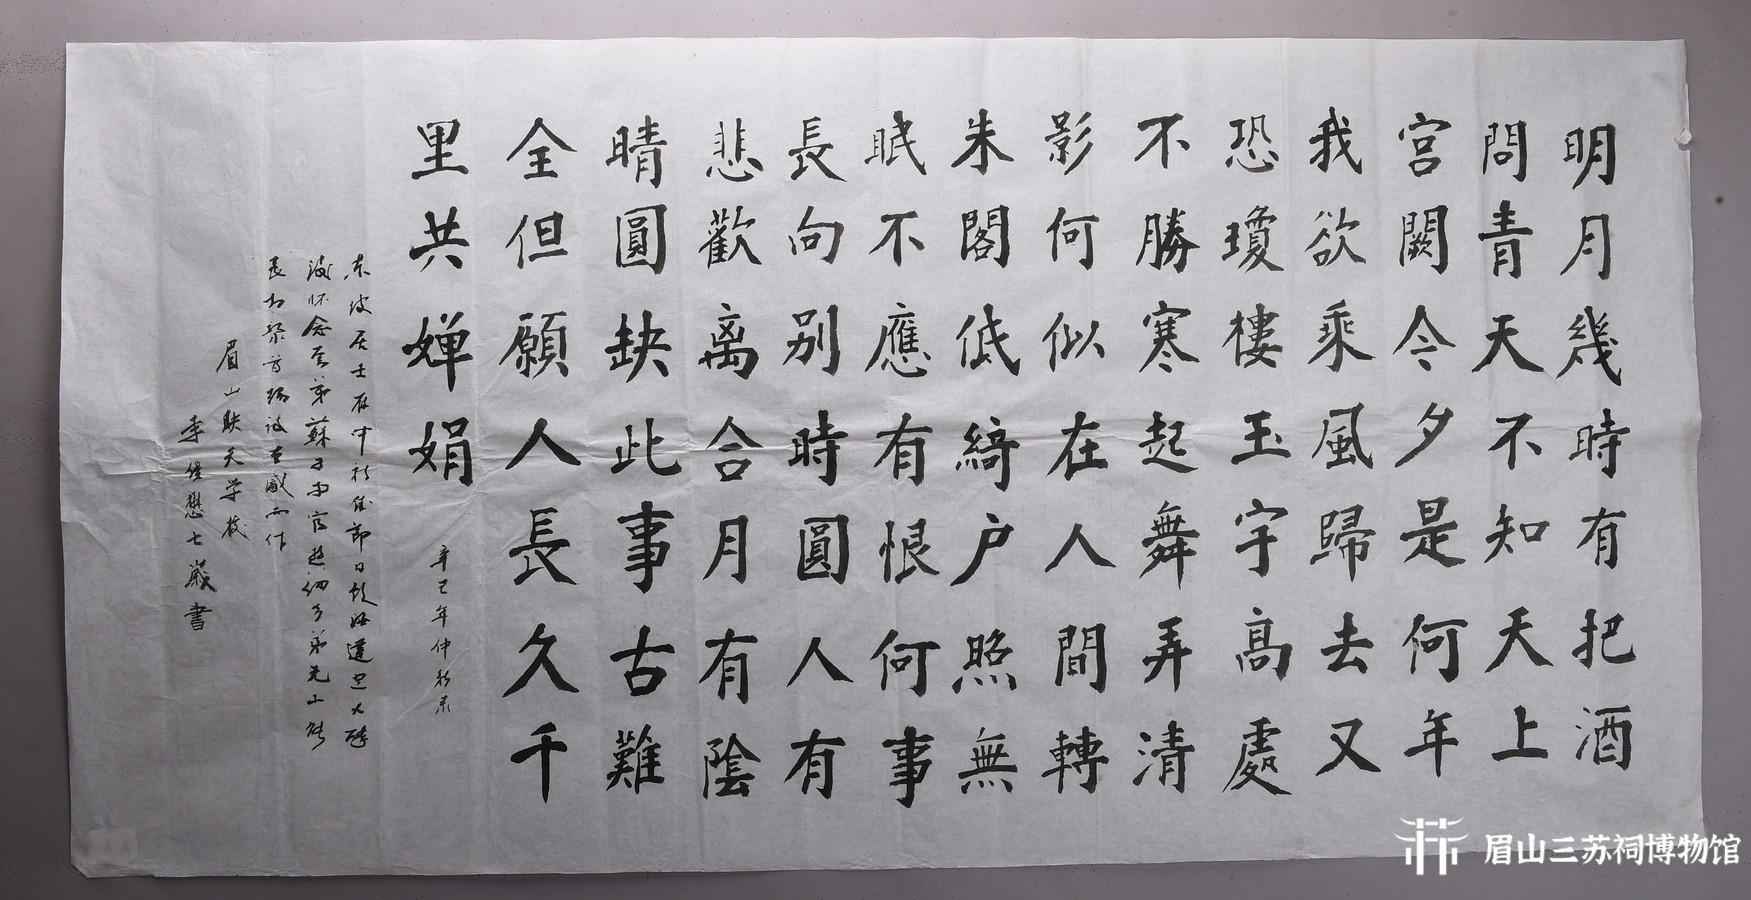 明月幾時有把酒
問青天不知天上
宮闕今夕是何年
我欲乘風歸去又
恐瓊樓玉宇高處
不勝寒起舞弄清
影何似在人間轉
朱閣低綺户照無
眠不應有恨何事
長向别時圓人有
悲歡离合月有陰
晴圓缺此事古難
全但願人長久千
里共嬋娟
辛巳年仲秋
東坡居士在中秋佳節日飲酒達旦大醉
後怀念其弟蘇子由
眉山映天学校
李 懋七歲書
眉山三苏祠博物馆